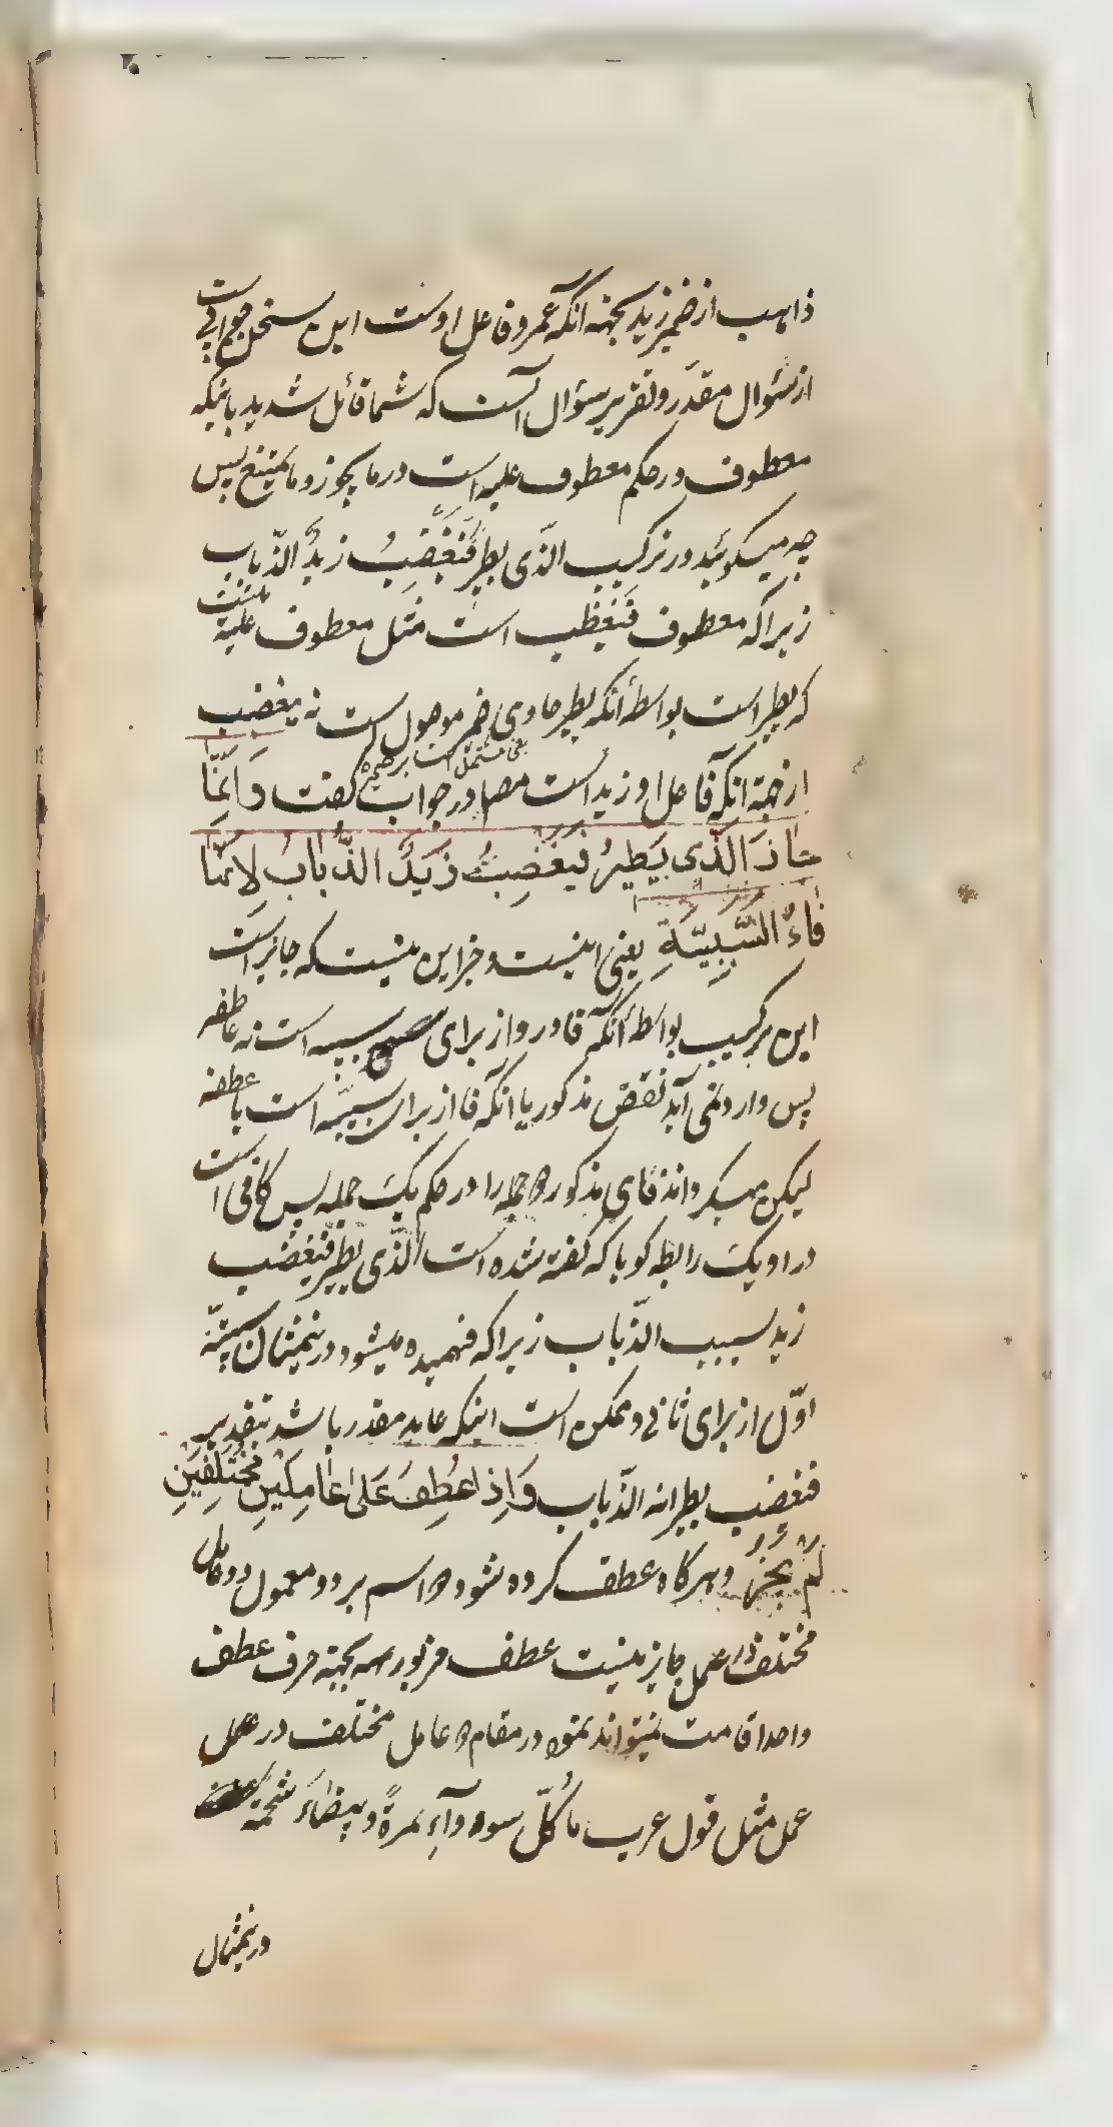 ذاهب از ضمیر زید بجهته انکه عمرو فاعل اوست این سخن جوابی است
از سئوال مقدّر و تقریر سؤال آنست که شما قائل شدید باینکه
معطوف در حکم معطوف علیه است در ما یجوز و ما یمتنع پس
چه میکوئید در ترکیب الّذی یطیر فَیَغْضِبُ زیدٌ الذّباب
زیراکه معطوف فیغظب است مثل معطوف علیه نیست
که یطیر است بواسطۀ انکه یطیر حاوی ضمیر موصول است نه یغضب
یعنی مشتمل است بر ضمیر
از جهة انکه فاعل او زید است مصا در جواب کفت وَاِنَّمٰا
جٰازَ الَّذی یَطیرُ فَیَغْضِبُ زَیْدٌ الذُّبابُ لِاَنَّهٰا
فٰاءُ السَّبَبِیَّةِ یعنی اینست و جز این نیست که جایز است
این ترکیب بواسطۀ آنکه فا در او از برای سببیه است نه عاطفه
پس وارد نمی آید نقض مذکور یا انکه فا از برای سببیّه است با عطفه
لیکن میکرداند فای مذکوره جمله را در حکم یک جمله پس کافی است
در او یک رابطه کویا که کفته شده است الّذی یطیر فیغضب
زید بسبب الذّباب زیراکه فهمیده میشود در نمیثال سببیّة
اوّل از برای ثانی و ممکن است اینکه عاید مقدر باشد بتقدیر
فیغضب بطیرانه الذّباب وَاِذا عُطِفَ عَلیٰ عٰامِلَیْنِ مُخْتَلِفَیْنِ
لَمْ یَجُزْ و هرکاه عطف کرده شود دو اسم بر دو معمول دو عامل
مختلف در عمل جایز نیست عطف مزبوره بجهة حرف عطف
واحد اقامت نمیتواند نمود در مقام دو عامل مختلف در عمل
عمل مثل قول عرب ما کُلّ سوداء تمرةً و بیضاءَ شحمة
در نمیثال